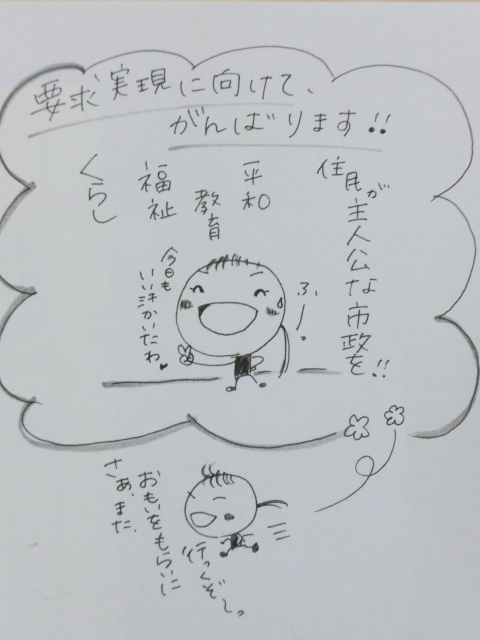 要求実現に向けて、
がんばります!!
住民が主人公な市政を!!
平和
教育
福祉
くらし
ふぅー。
今日も
いい汗かいたわ♥
さぁ、また、
おもいをもらいに
行くぞーっ